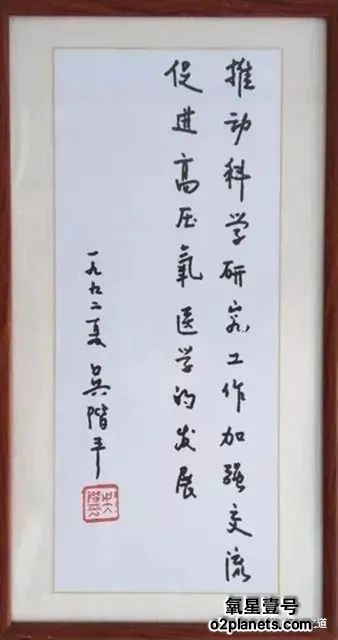 推动科学研究工作加强交流
促进高压氧医学的发展
一九九二夏 吴阶平
氧星壹号
o2planets.com